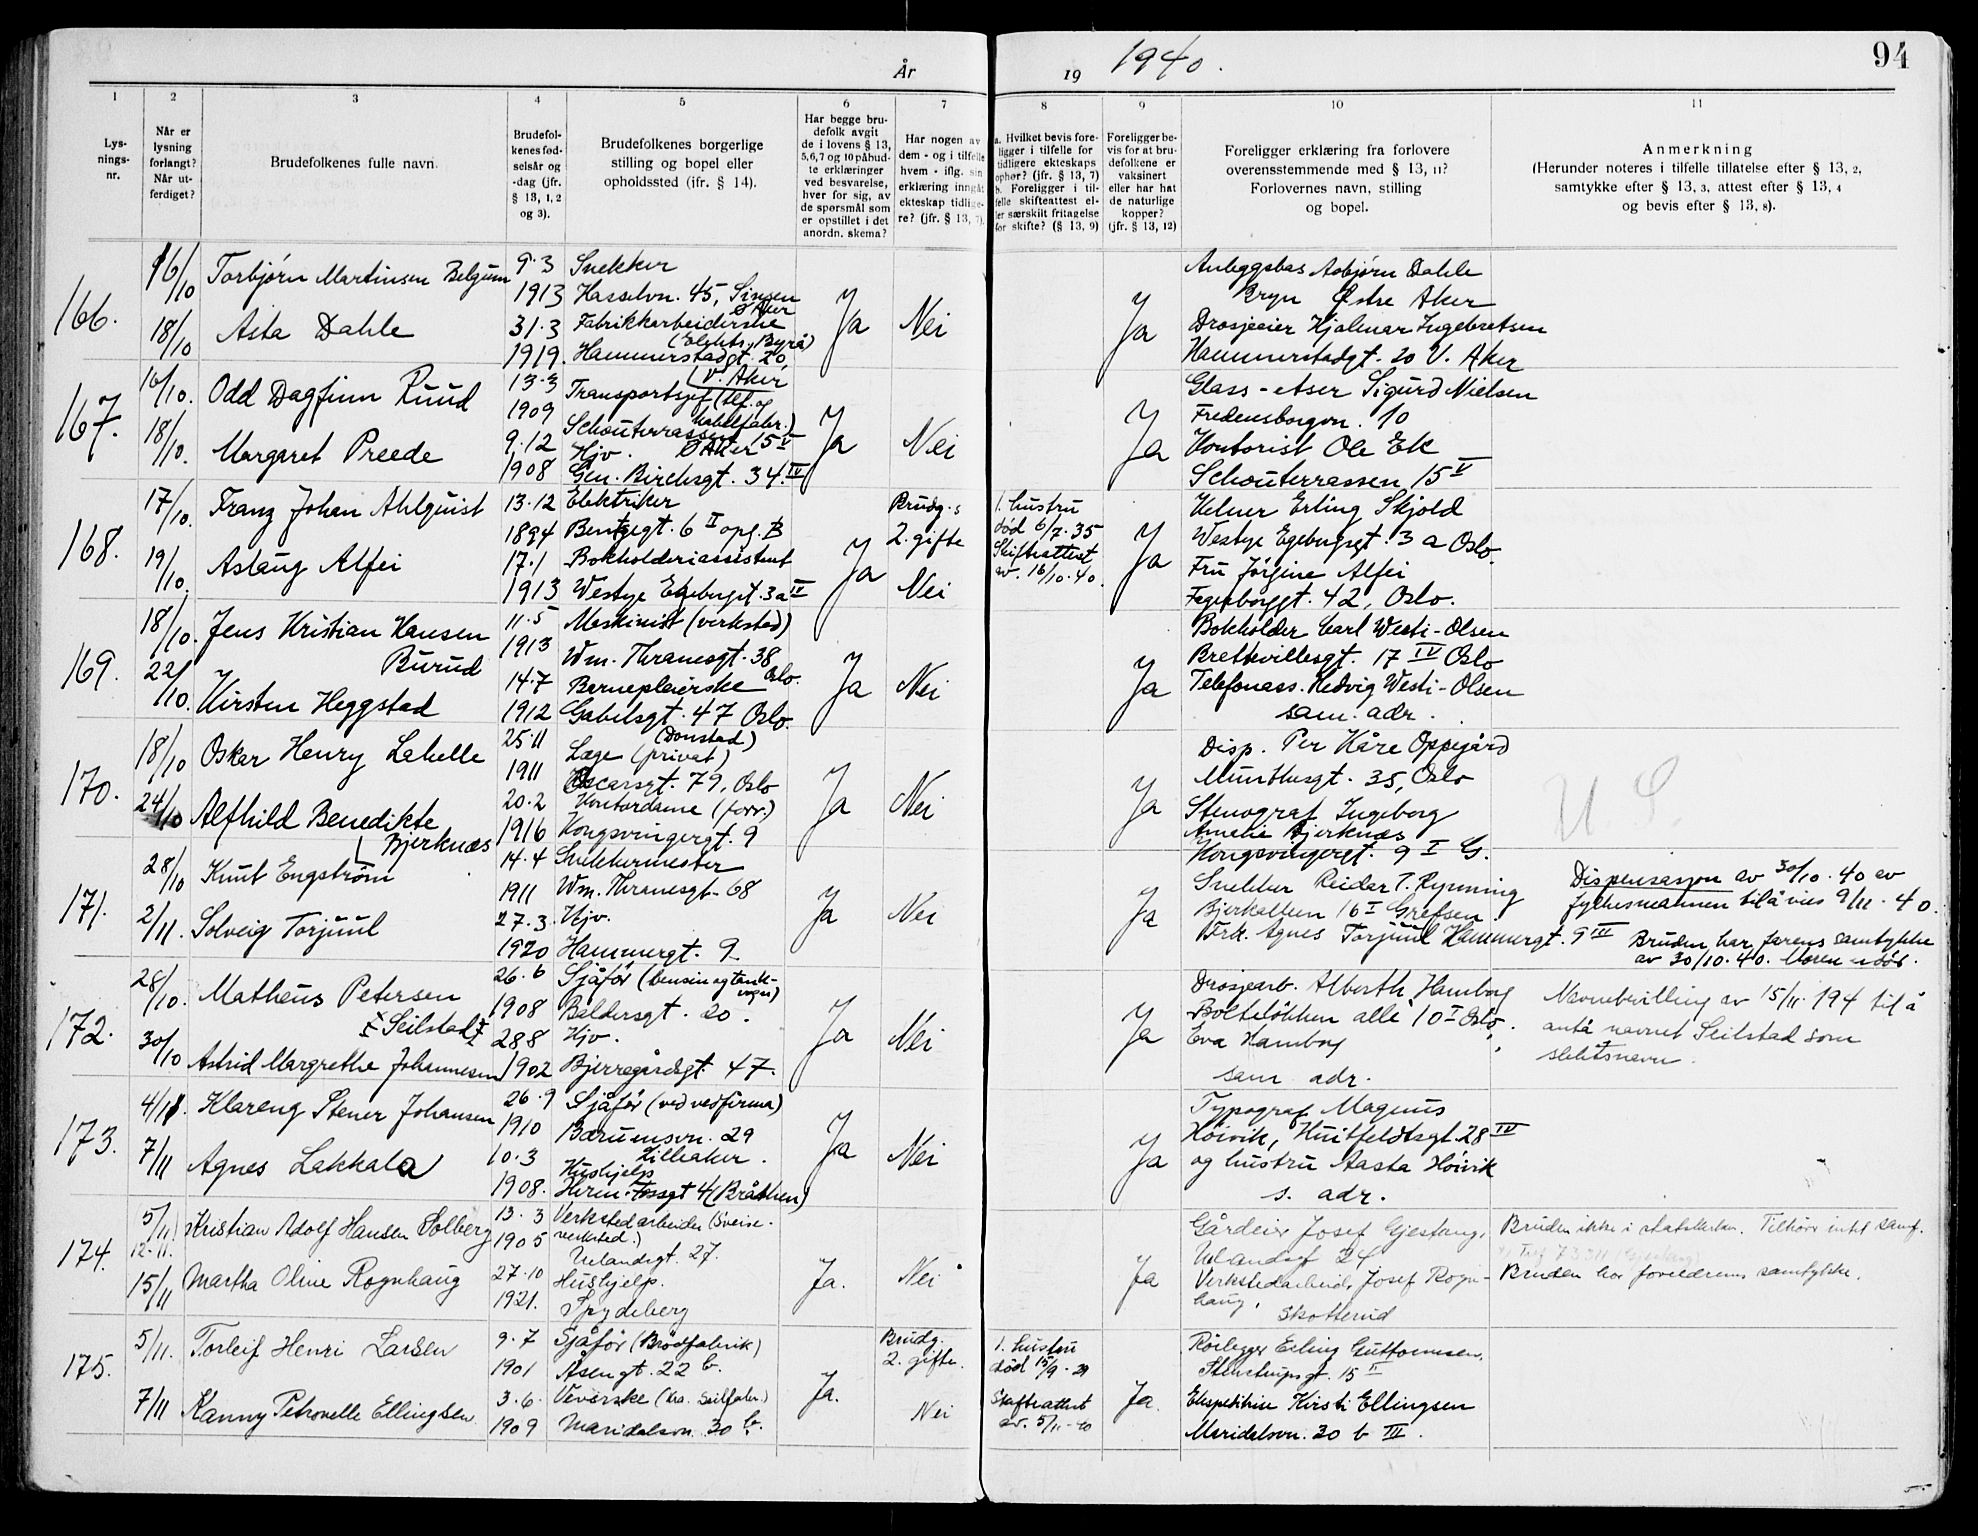 94
År 19 1940.
1 2 3 4 5 6 7 8 9 10 11
Lys-
nings-
nr.
Når er
lysning
forlangt?
Når ut-
ferdiget?
Brudefolkenes fulle navn.
Brudefol-
kenes fød-
selsår og
-dag (jfr.
§ 13, 1, 2
og 3).
Brudefolkenes borgerlige
stilling og bopel eller
opholdssted (jfr. § 14).
Har begge bru-
defolk avgit
de i lovens § 13,
5,6,7 og 10 påbud-
te erklæringer
ved besvarelse,
hver for sig, av
de spørsmål som
er opstillet i det
anordn. skema?
Har nogen av
dem - og i tilfelle
hvem - iflg. sin
erklæring inngått
ekteskap tidlige-
re? (jfr. § 13, 7).
a. Hvilket bevis fore-
ligger i tilfelle for
tidligere ekteskaps
ophør? (jfr. § 13, 7)
b. Foreligger i til-
felle skifteattest el-
ler særskilt fritagelse
for skifte? (§ 13, 9)
Foreligger be-
vis for at bru-
defolkene er
vaksinert
eller har hat
de naturlige
kopper?
(jfr. § 13, 12)
Foreligger erklæring fra forlovere
overensstemmende med § 13, 11?
Forlovernes navn, stilling
og bopel.
Anmerkning
(Herunder noteres i tilfelle tillatelse efter § 13, 2,
samtykke efter § 13, 3, attest efter § 13, 4
og bevis efter § 13, 8).
166.
16/10
18/10
Torbjørn Martinsen Belgum
Asta Dahle
9.3
1913
31.3
1919.
Snekker
Hasselvn. 45, Sinsen
Ø Aker
Fabrikkarbeiderske
(Elekts. Byrå)
Hammerstadgt. 20,
V. Aker
Ja
Nei
Ja
Anleggsbas Asbjørn Dahle
Bryn Østre Aker
Drosjeeier Hjalmar Ingebretsen
Hammerstadgt. 20 V. Aker
167.
16/10.
18/10.
Odd Dagfinn Ruud
Margaret Preede
13.3
1909
9.12
1908
Transportsjef (tlf. og
kabelfabr.)
Schouterrassen 15 V
Ø Aker
Hjv.
Gen. Birchsgt. 34. IV
Ja
Nei
Ja
Glass-etser Sigurd Nielsen
Fredensborgvn. 10
Kontorist Ole Ek
Schouterrassen 15 V
168.
17/10.
19/10.
Franz Johan Ahlquist
Aslaug Alfei
13.12
1894
17.1
1913
Elektriker
Bentsegt. 6 I opg. B
Bokholderiassistent
Westye Egebergt. 3 a IV
Ja
Brudg.s
2. gifte
Nei
1. hustru
død 6/7.35
Skifteattest
av. 16/10.40.
Ja
Kelner Erling Skjold
Westye Egebergsgt. 3 a Oslo.
Fru Jörgine Alfei
Fagerborggt. 42, Oslo.
169.
18/10.
22/10.
Jens Kristian Hansen
Burud
Kirsten Heggstad
11.5
1913
14.7
1912
Maskinist (verksted)
Wm. Thranesgt. 38
Oslo.
Barnepleierske
Gabelsgt. 47 Oslo.
Ja
Nei
Ja
Bokholder Carl Westi-Olsen
Brettevillesgt. 17 IV Oslo
Telefonass. Hedvig Westi-Olsen
sam. adr.
170.
18/10
24/10
Oskar Henry Lahelle
Alfhild Benedikte
Bjerknæs
25.11
1911
20.2
1916
(Donstad)
Læge (privat)
Oscarsgt. 79, Oslo
Kontordame (forr.)
Kongsvingergt. 9
Ja
Nei
Ja
Disp. Per Kåre Oppegård
Munthesgt. 35, Oslo
Stenograf Ingeborg
Amelie Bjerknæs
Kongsvingergt. 9 I G.
U S.
171.
28/10
2/11.
Knut Engström
Solveig Torjuul
14.4
1911
27.3.
1920
Snekkermester
Wm. Thranesgt. 68
Hjv.
Hammergt. 9
Ja
Nei
Ja
Snekker Reidar T. Rynning
Bjerkealleen 16 I Grefsen.
Frk. Agnes Torjuul Hammergt. 9 III
Dispensasjon av 30/10.40 av
fylkesmannen til å vies 9/11.40.
Bruden har farens samtykke
av 30/10.40. Moren død.
172.
28/10.
30/10
Mathæus Petersen
Seilstad
Astrid Margrethe Johannesen
26.6
1908
28 8
1902
Sjåför (bensin og tank-
vogn)
Baldersgt. 20.
Hjv.
Bjerregårdsgt. 47.
Ja
Nei
Ja
Drosjearb. Alberth Hamborg
Bolteløkken alle 10 I Oslo.
Eva Hamborg
sam. adr.
Navnebevilling av 15/11.194 til å
anta navnet Seilstad som
slektsnavn.
173.
4/11.
7/11
Klareng Stener Johansen
Agnes Lakkala
26.9
1910
10.3
1908.
Sjåför (ved vedfirma)
Bærumsvn. 29
Lilleaker.
Hushjelp
Herm. Fossgt 4 (Bråthen)
Ja
Nei
Ja
Typograf Magnus
Höivik, Huitfeldtsgt. 28 IV
og hustru Aasta Höivik
s. adr.
174.
5/11
12-11.
15/11
Kristian Adolf Hansen Solberg
Martha Oline Rognhaug
13.3
1905
27.10
1921.
Verkstedarbeider (Sveise-
verksted.)
Uelandsgt. 27.
Hushjelp.
Spydeberg
Ja.
Nei
Ja
Gårdeier Josef Gjestang,
Uelandsgt 24
Verkstedarbeid. Josef Rogn-
haug,
Skotterud
Bruden ikke i statskirken. Tilhører intet samf.
Bruden har foreldrenes samtykke.
175.
5/11.
7/11
Torleif Henri Larsen
Kanny Petronelle Ellingsen
9.7
1901
3.6.
1909
Sjåför (Brödfabrik)
Åsengt. 22 b.
Veverske (Kra. Seilfabr.)
Maridalsvn. 30 b.
Ja.
Brudg.
2. gifte.
Nei
1. hustru
död 15/9-29
Skifteattest
av. 5/11-40
Ja.
Rörlegger Erling Guttormsen.
Stenstrupsgt. 15 II
Ekspeditrise Kirsti Ellingsen
Maridalsvn. 30 b III.